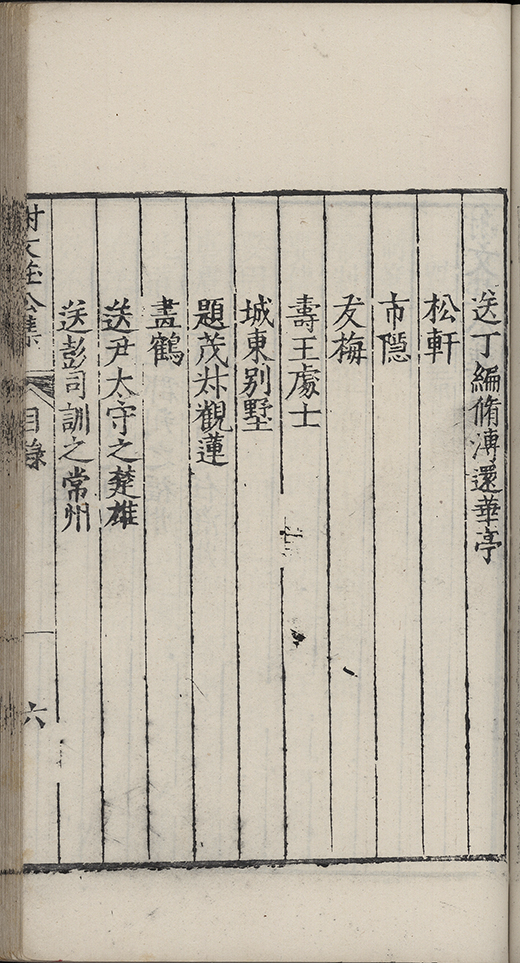 送丁編脩溥還華亭
松軒
市隱
友梅
壽王處士
城東别墅
題茂林觀蓮
畫鶴
送尹太守之楚雄
送彭司訓之常州
文莊公集
目錄
六